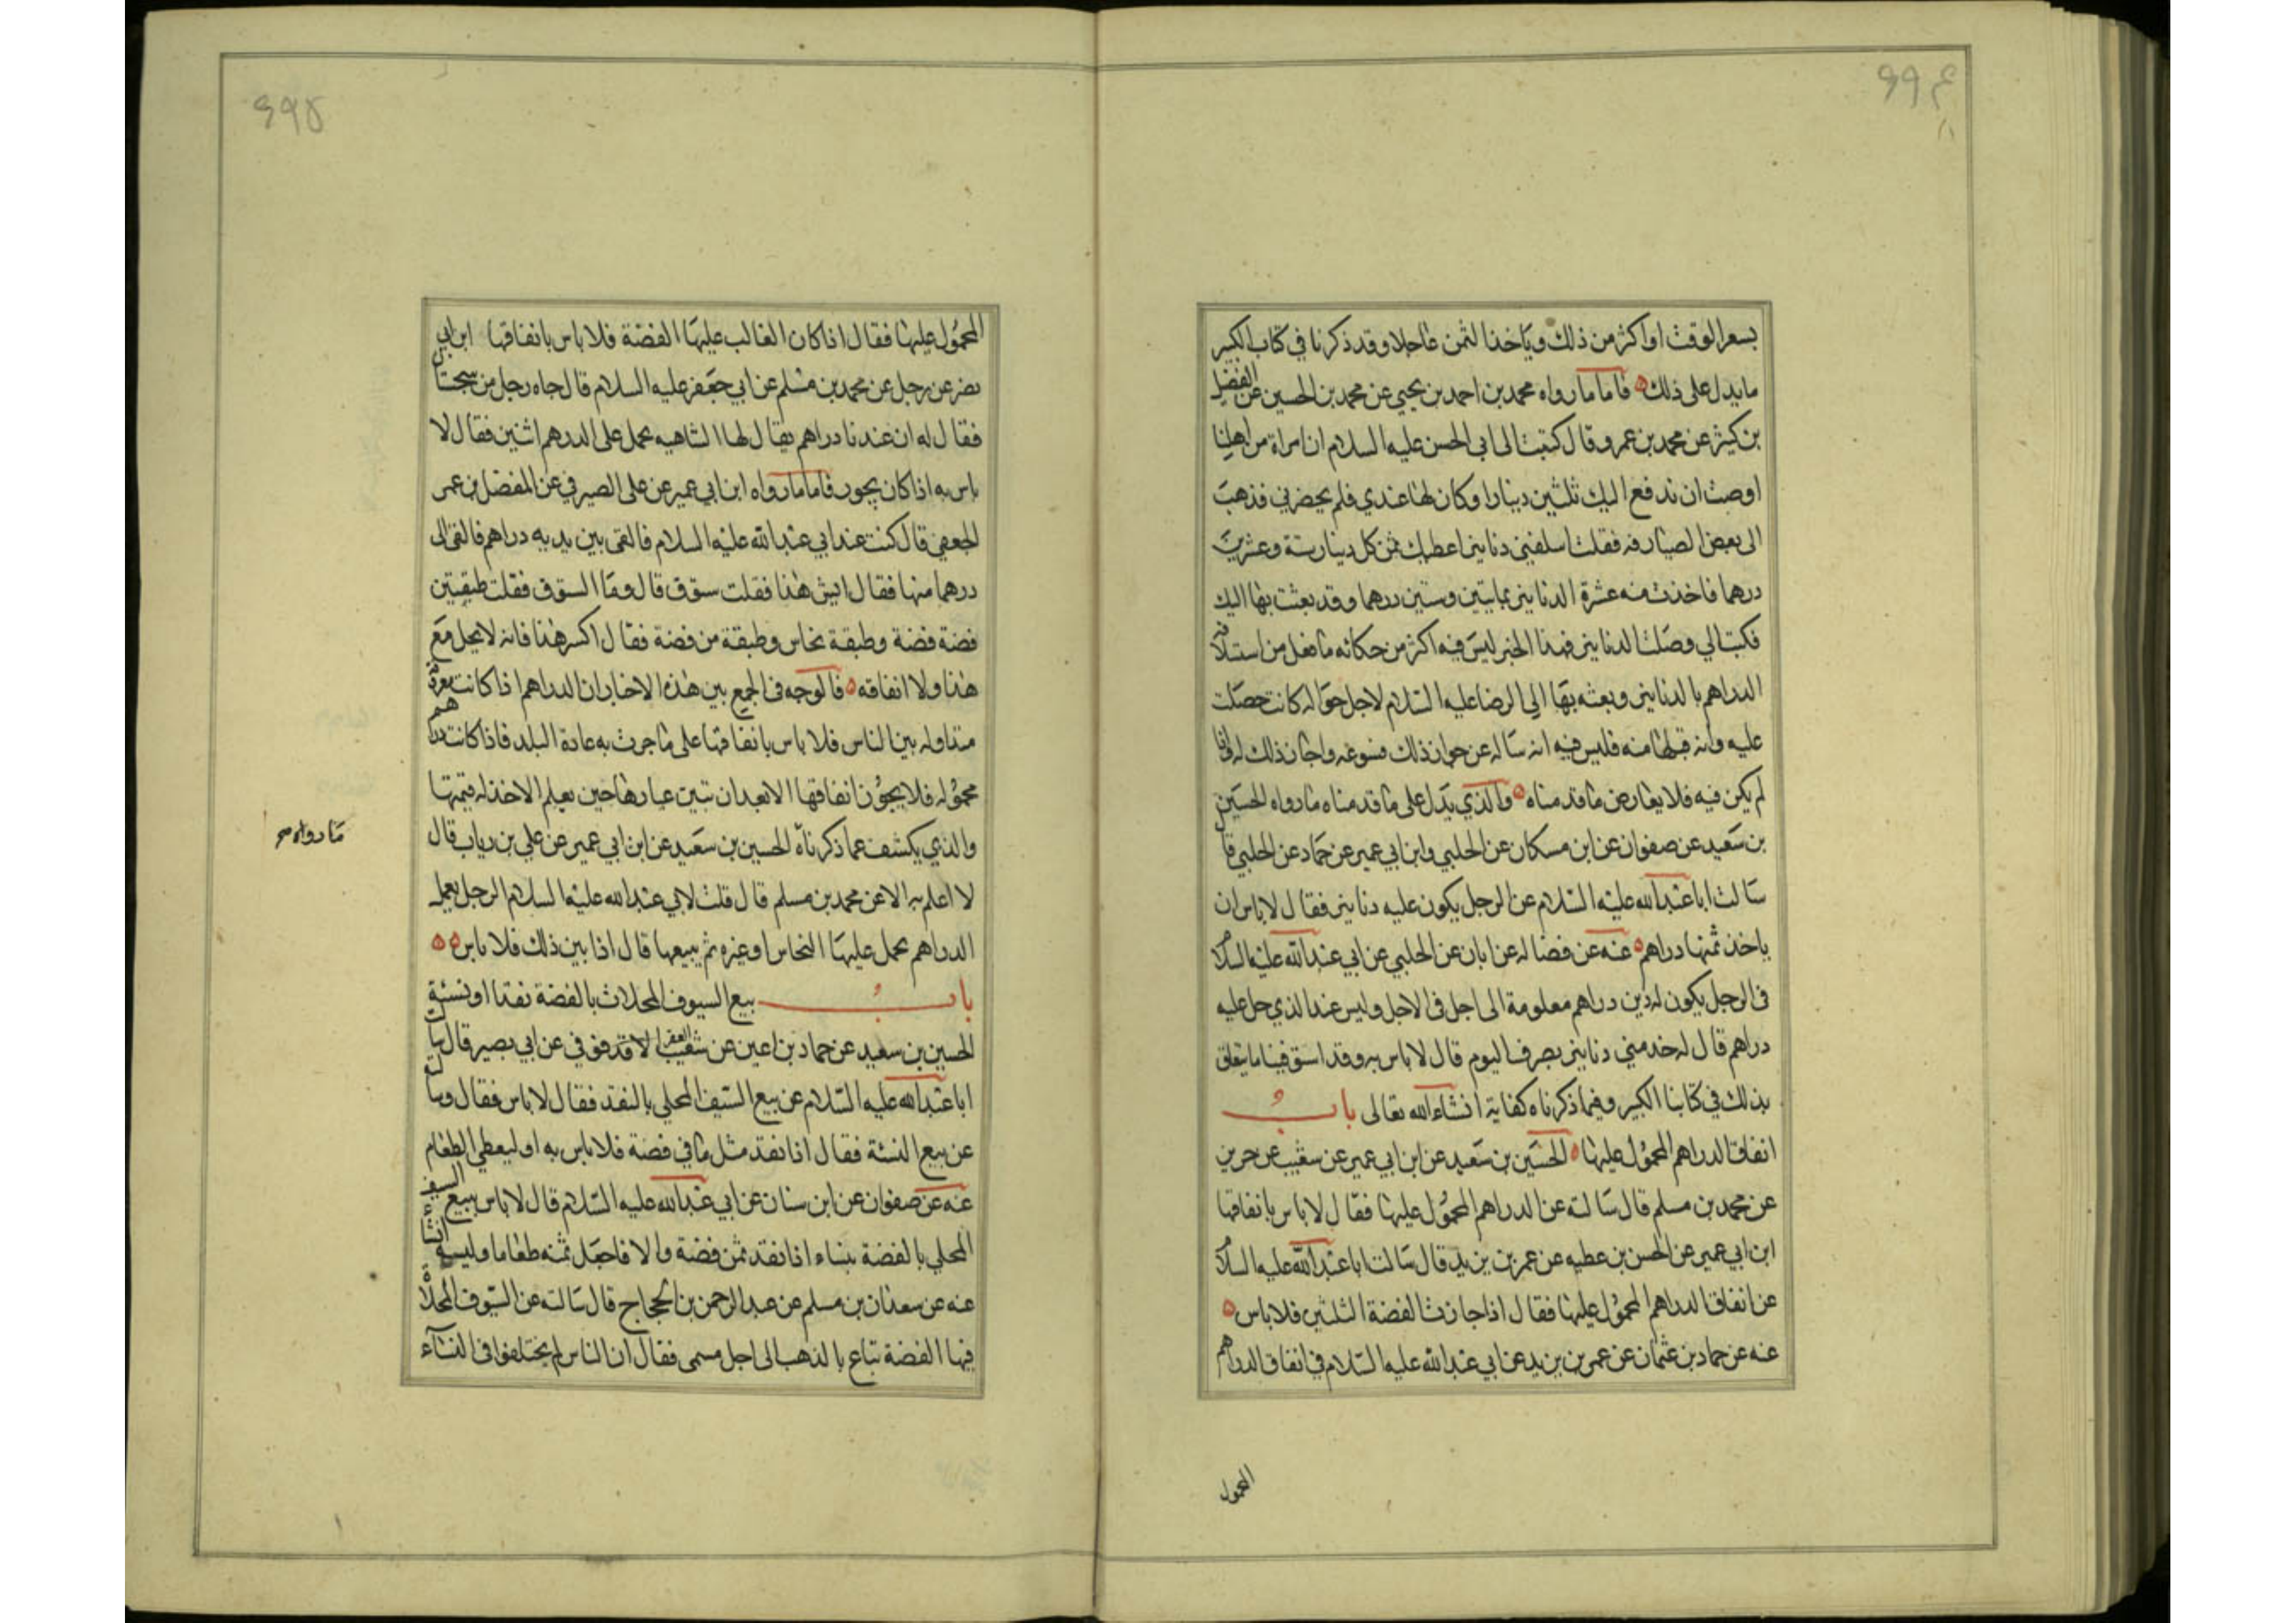 ۶۶۴
بسعر الوقت او اكثر من ذلك وياخذ الثمن عاجلا وقد ذكرنا في كتاب الكبير
ما يدل على ذلك فاما ما رواه محمد بن احمد بن يحيى عن محمد بن الحسين عن الفضل
بن كثير عن محمد بن عمرو قال كتبت الى ابي الحسن عليه السلام ان امراة من اهلنا
اوصت ان ندفع اليك ثلثين دينارا وكان لها عندي فلم يحضرني فذهبت
الى بعض الصيارفة فقلت اسلفني دنانير اعطيك ثمن كل دينار ستة وعشرين
درهما فاخذت منه عشرة الدنانير بمايتين وستين درهما وقد بعثت بها اليك
فكتب الي وصلت الدنانير فهذا الخبر ليس فيه اكثر من حكاية ما فعل من استلافه
الدراهم بالدنانير وبعثه بها الى الرضا عليه السلام لاجل حوالة كانت حصلت
عليه وانه قبلها منه فليس فيه انه ساله عن جواز ذلك فسوغه واجاز ذلك له فاذا
لم يكن فيه فلا يعارض ما قدمناه والذي يدل على ما قدمناه ما رواه الحسين
بن سعيد عن صفوان عن ابن مسكان عن الحلبي وابن ابي عمير عن حماد عن الحلبي قال
سالت ابا عبد الله عليه السلام عن الرجل يكون عليه دنانير فقال لا باس ان
ياخذ ثمنها دراهم عنه عن فضاله عن ابان عن الحلبي عن ابي عبد الله عليه السلام
في الرجل يكون له دين دراهم معلومة الى اجل في الاجل وليس عند الذي حل عليه
دراهم قال له خذ مني دنانير بصرف اليوم قال لا باس به وقد استوفينا ما يتعلق
بذلك في كتابنا الكبير وفيما ذكرناه كفاية انشاء الله تعالى باب
انفاق الدراهم المحمول عليها الحسين بن سعيد عن ابن ابي عمير عن سعيب عن حريز
عن محمد بن مسلم قال سالته عن الدراهم المحمول عليها فقال لا باس بانفاقها
ابن ابي عمير عن الحسن بن عطيه عن عمر بن يزيد قال سالت ابا عبد الله عليه السلام
عن انفاق الدراهم المحمول عليها فقال اذا جازت الفضة الثلثين فلا باس
عنه عن حماد بن عثمان عن عمر بن يزيد عن ابي عبد الله عليه السلام في انفاق الدراهم
المحمول
۶۶۵
المحمول عليها فقال اذا كان الغالب عليها الفضة فلا باس بانفاقها ابن ابي
نصر عن رجل عن محمد بن مسلم عن ابي جعفر عليه السلام قال جاه رجل من سجستان
فقال له ان عندنا دراهم يقال لها الشاهيه يحمل على الدرهم اثنين فقال لا
باس به اذا كان يجوز فاما ما رواه ابن ابي عمير عن علي الصيرفي عن المفضل بن عمر
الجعفي قال كنت عند ابي عبد الله عليه السلام فالقى بين يديه دراهم فالقى الى
درهما منها فقال ايش هذا فقلت ستوق قال وما الستوق فقلت طبقتين
فضة فضة وطبقة نحاس وطبقة من فضة فقال اكسر هذا فانه لا يحل مع
هذا ولا انفاقه فالوجه في الجمع بين هذه الاخبار ان الدراهم اذا كانت معرفة
متداوله بين الناس فلا باس بانفاقها على ما جرت به عادة البلد فاذا كانت دراهم
مجهوله فلا يجوز انفاقها الا بعد ان تبين عيارها حين يعلم الاخذ له قيمتها
والذي يكشف عما ذكرناه الحسين بن سعيد عن ابن ابي عمير عن علي بن رياب قال
ما رواه
لا اعلم به الا عن محمد بن مسلم قال قلت لابي عبد الله عليه السلام الرجل يعمل
الدراهم يحمل عليها النحاس او غيره ثم يبيعها قال اذا بين ذلك فلا باس
باب بيع السيوف المحلات بالفضة نقدا او نسئة
الحسين بن سعيد عن حماد بن اعين عن شعيب العقر لا قدفوفي عن ابي بصير قال سالت
ابا عبد الله عليه السلام عن بيع السيف المحلي بالنقد فقال لا باس فقال وسالته
عن بيع النسئة فقال اذا نقد مثل ما في فضة فلا باس به او ليعطي الطعام
عنه عن صفوان عن ابن سنان عن ابي عبد الله عليه السلام قال لا باس ببيع السيف
المحلي بالفضة بنساء اذا نقد ثمن فضة والا فاجعل ثمنه طعاما ولينسه انشاء
عنه عن سعدان بن مسلم عن عبد الرحمن بن الحجاج قال سالته عن السيوف المحلاة
فيها الفضة تباع بالذهب الى اجل مسمى فقال ان الناس لم يختلفوا في النسآء